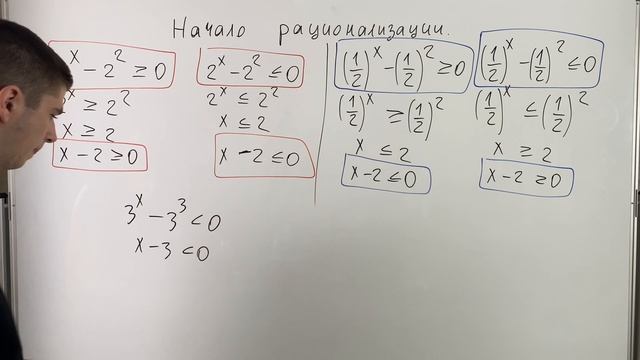 Начало рационализации.
x − 2² ≥ 0
x ≥ 2²
x ≥ 2
x − 2 ≥ 0
2ˣ − 2² ≤ 0
2ˣ ≤ 2²
x ≤ 2
x − 2 ≤ 0
(1/2)ˣ − (1/2)² ≥ 0
(1/2)ˣ ≥ (1/2)²
x ≤ 2
x − 2 ≤ 0
(1/2)ˣ − (1/2)² ≤ 0
(1/2)ˣ ≤ (1/2)²
x ≥ 2
x − 2 ≥ 0
3ˣ − 3³ < 0
x − 3 < 0